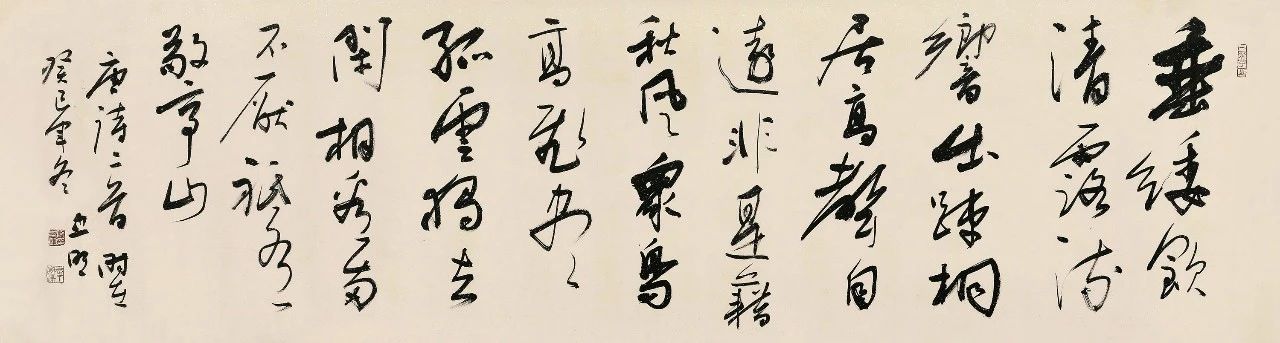 垂緌飲
清露流
響出疎桐
居高聲自
遠非是藉
秋風衆鳥
高飛盡
孤雲獨去
閑相看兩
不厭祇有
敬亭山
唐詩二首
癸巳年冬